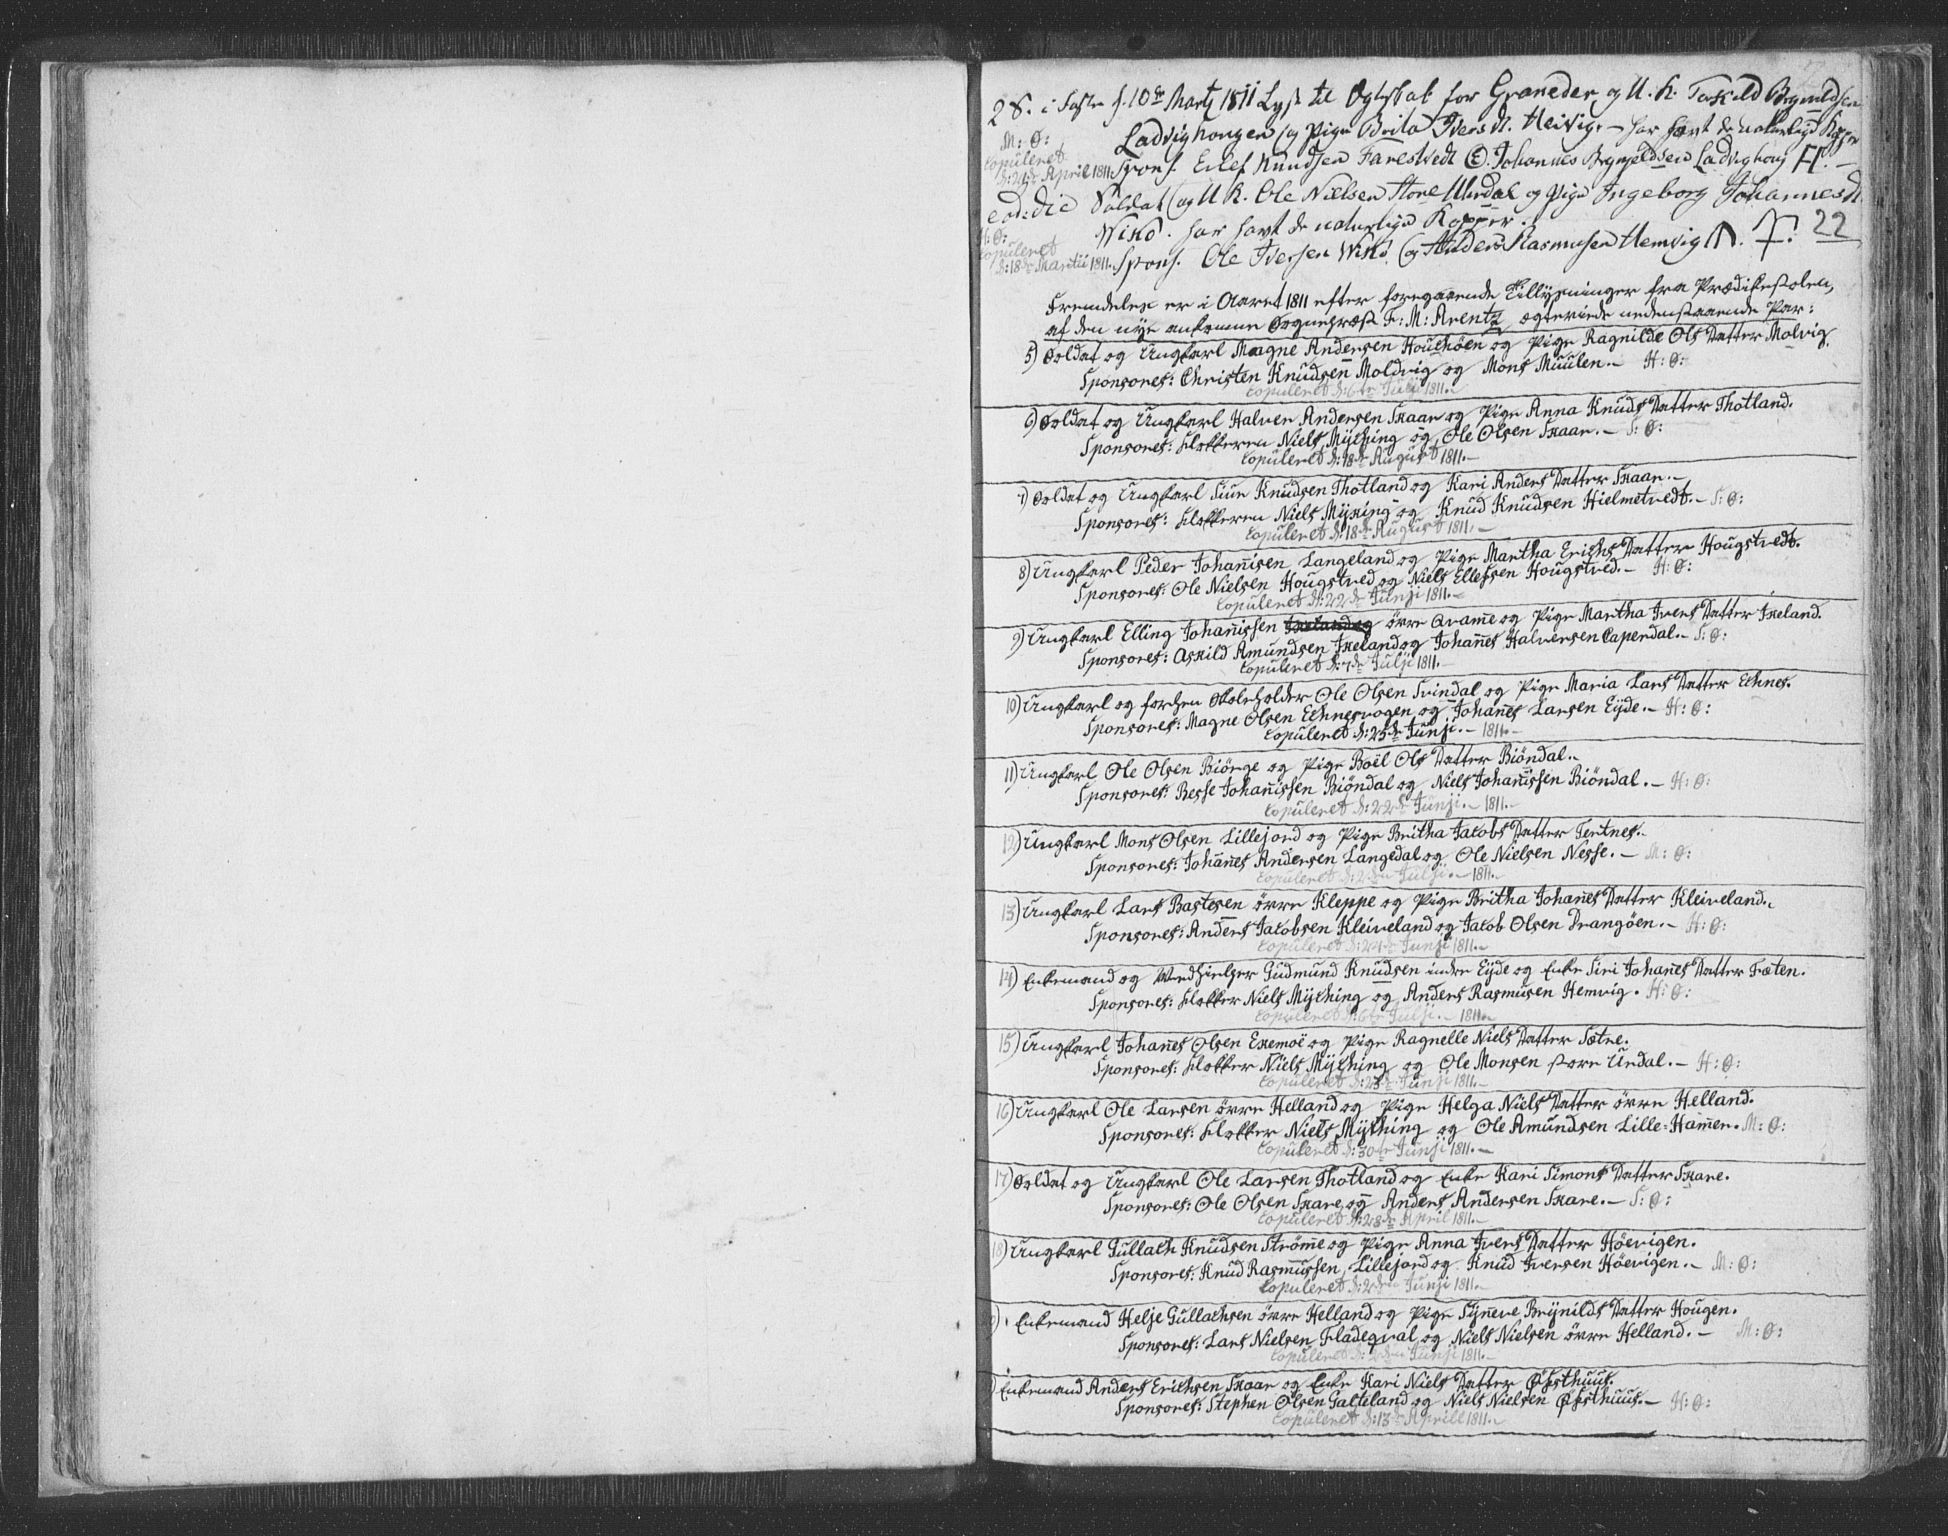 2 S. i Faste d. 10de Marty 1811 Lyst til Ægteskab for Graneder og U. K. Taskild Brynildsen
M: Ø: Ladvighougen og Pige Brita Ivers D. Heivig. – har havt de naturlige Kopper
Copuleret d: 24de April 1811. Spons. Ellef Knudsen Farestvedt & Johannes Brynieldsen Ladvighoug
eod: die Soldat og U K. Ole Nielsen Store Uhrdal og Pige Ingeborg Johannes D.
H: Ø: Wiko. har havt de naturlige Kopper.
Copuleret d: 18de Martii 1811. Spons. Ole Iversen Wiko og Anders Rasmusen Hemvig 22
Fremdeles er i Aaret 1811 efter foregaaende Tillysninger fra Prædikestolen,
af den nye ankomne Sognepræst F: M: Arentz ægteviede nedenstaaende Par:
5) Soldat og Ungkarl Magne Andersen Houshöen og Pige Ragnilde Ols Datter Molvig
Sponsores: Christen Knudsen Moldvig og Mons Muulen. – H: Ø:
Copuleret d: 6te Juli 1811. –
6) Soldat og Ungkarl Halver Andersen Skaar og Pige Anna Knuds Datter Thotland.
Sponsores: Klokkeren Niels Myching og Ole Olsen Skaar. – S: Ø:
Copuleret d: 18de August 1811. –
7) Soldat og Ungkarl Siur Knudsen Thotland og Kari Anders Datter Skaar. –
Sponsores: Klokkeren Niels Myking og Knud Knudsen Hielmetvedt. – S: Ø:
Copuleret d: 18de August 1811. –
8) Ungkarl Peder Johanisen Langeland og Pige Martha Erichs Datter Hougstvedt.
Sponsores: Ole Nielsen Hougstved og Niels Ellefsen Hougstved. – H: Ø:
Copuleret d: 22de Junji 1811. –
9) Ungkarl Elling Johanissen övre Qvame og Pige Martha Ivers Datter Ixeland.
Sponsores: Askild Amundsen Ixeland og Johanes Halversen Caperdal. – S: Ø:
Copuleret d: 7de Julji 1811. –
10) Ungkarl og forhen Skoleholder Ole Olsen Svindal og Pige Maria Lars Datter Echnes.
Sponsores: Magne Olsen Echnesvogen og Johanes Larsen Eyde. – H: Ø:
Copuleret d: 23de Junji. – 1811. –
11) Ungkarl Ole Olsen Biörge og Pige Boël Ols Datter Biöndal. –
Sponsores: Besse Johanissen Biöndal og Niels Johanissen Biöndal. – H: Ø:
Copuleret d: 22de Junji. – 1811. –
12) Ungkarl Mons Olsen Lillejord og Pige Britha Jacobs Datter Tertnes. –
Sponsores: Johanes Andersen Langedal og Ole Nielsen Nesse. – M: Ø:
Copuleret d: Julji. – 1811. –
13) Ungkarl Lars Bastesen övre Kleppe og Pige Britha Johanes Datter Kleiveland. –
Sponsores: Anders Jacobsen Kleiveland og Jacob Olsen Drangöen. – H: Ø:
Copuleret d: Junji 1811. –
14) Enkemand og Medhielper Gudmund Knudsen indre Eyde og Enke Siri Johanes Datter Træten.
Sponsores: Klokker Niels Myching og Anders Rasmusen Hemvig. H: Ø:
Copuleret d: 6te Julji. – 1811. –
15) Ungkarl Johanes Olsen Exemoë og Pige Ragnelle Niels Datter Sætre.
Sponsores: Klokker Niels Myching og Ole Monsen store Urdal. – H: Ø:
Copuleret d: 23de Junji 1811. –
16) Ungkarl Ole Larsen övre Helland og Pige Helga Niels Datter övre Helland.
Sponsores: Klokker Niels Myching og Ole Amundsen Lille=Hamer. M: Ø:
Copuleret d: 30te Junji 1811. –
17) Soldat og Ungkarl Ole Larsen Thotland og Enke Kari Simons Datter Skare.
Sponsores: Ole Olsen Skare og Anders Andersen Skare. – S: Ø:
Copuleret d: 28de April 1811. –
18) Ungkarl Gullach Knudsen Ströme og Pige Anna Ivers Datter Höevigen.
Sponsores: Knud Rasmussen Lillejord og Knud Iversen Höevigen. – M: Ø:
Copuleret d: 2den Junji 1811. –
Enkemand Helje Gullachsen övre Helland og Pige Syneve Brynilds Datter Hougen.
Sponsores: Lars Nielsen Fladeqval og Niels Nielsen övre Helland. – M: Ø:
Copuleret d: 2den Junji 1811. –
Enkemand Anders Erichsen Skaar og Enke Kari Niels Datter Øysthuus.
Sponsores: Stephen Olsen Galteland og Niels Nielsen Øysthuus. – H: Ø:
Copuleret d: 13de Aprill 1811. –